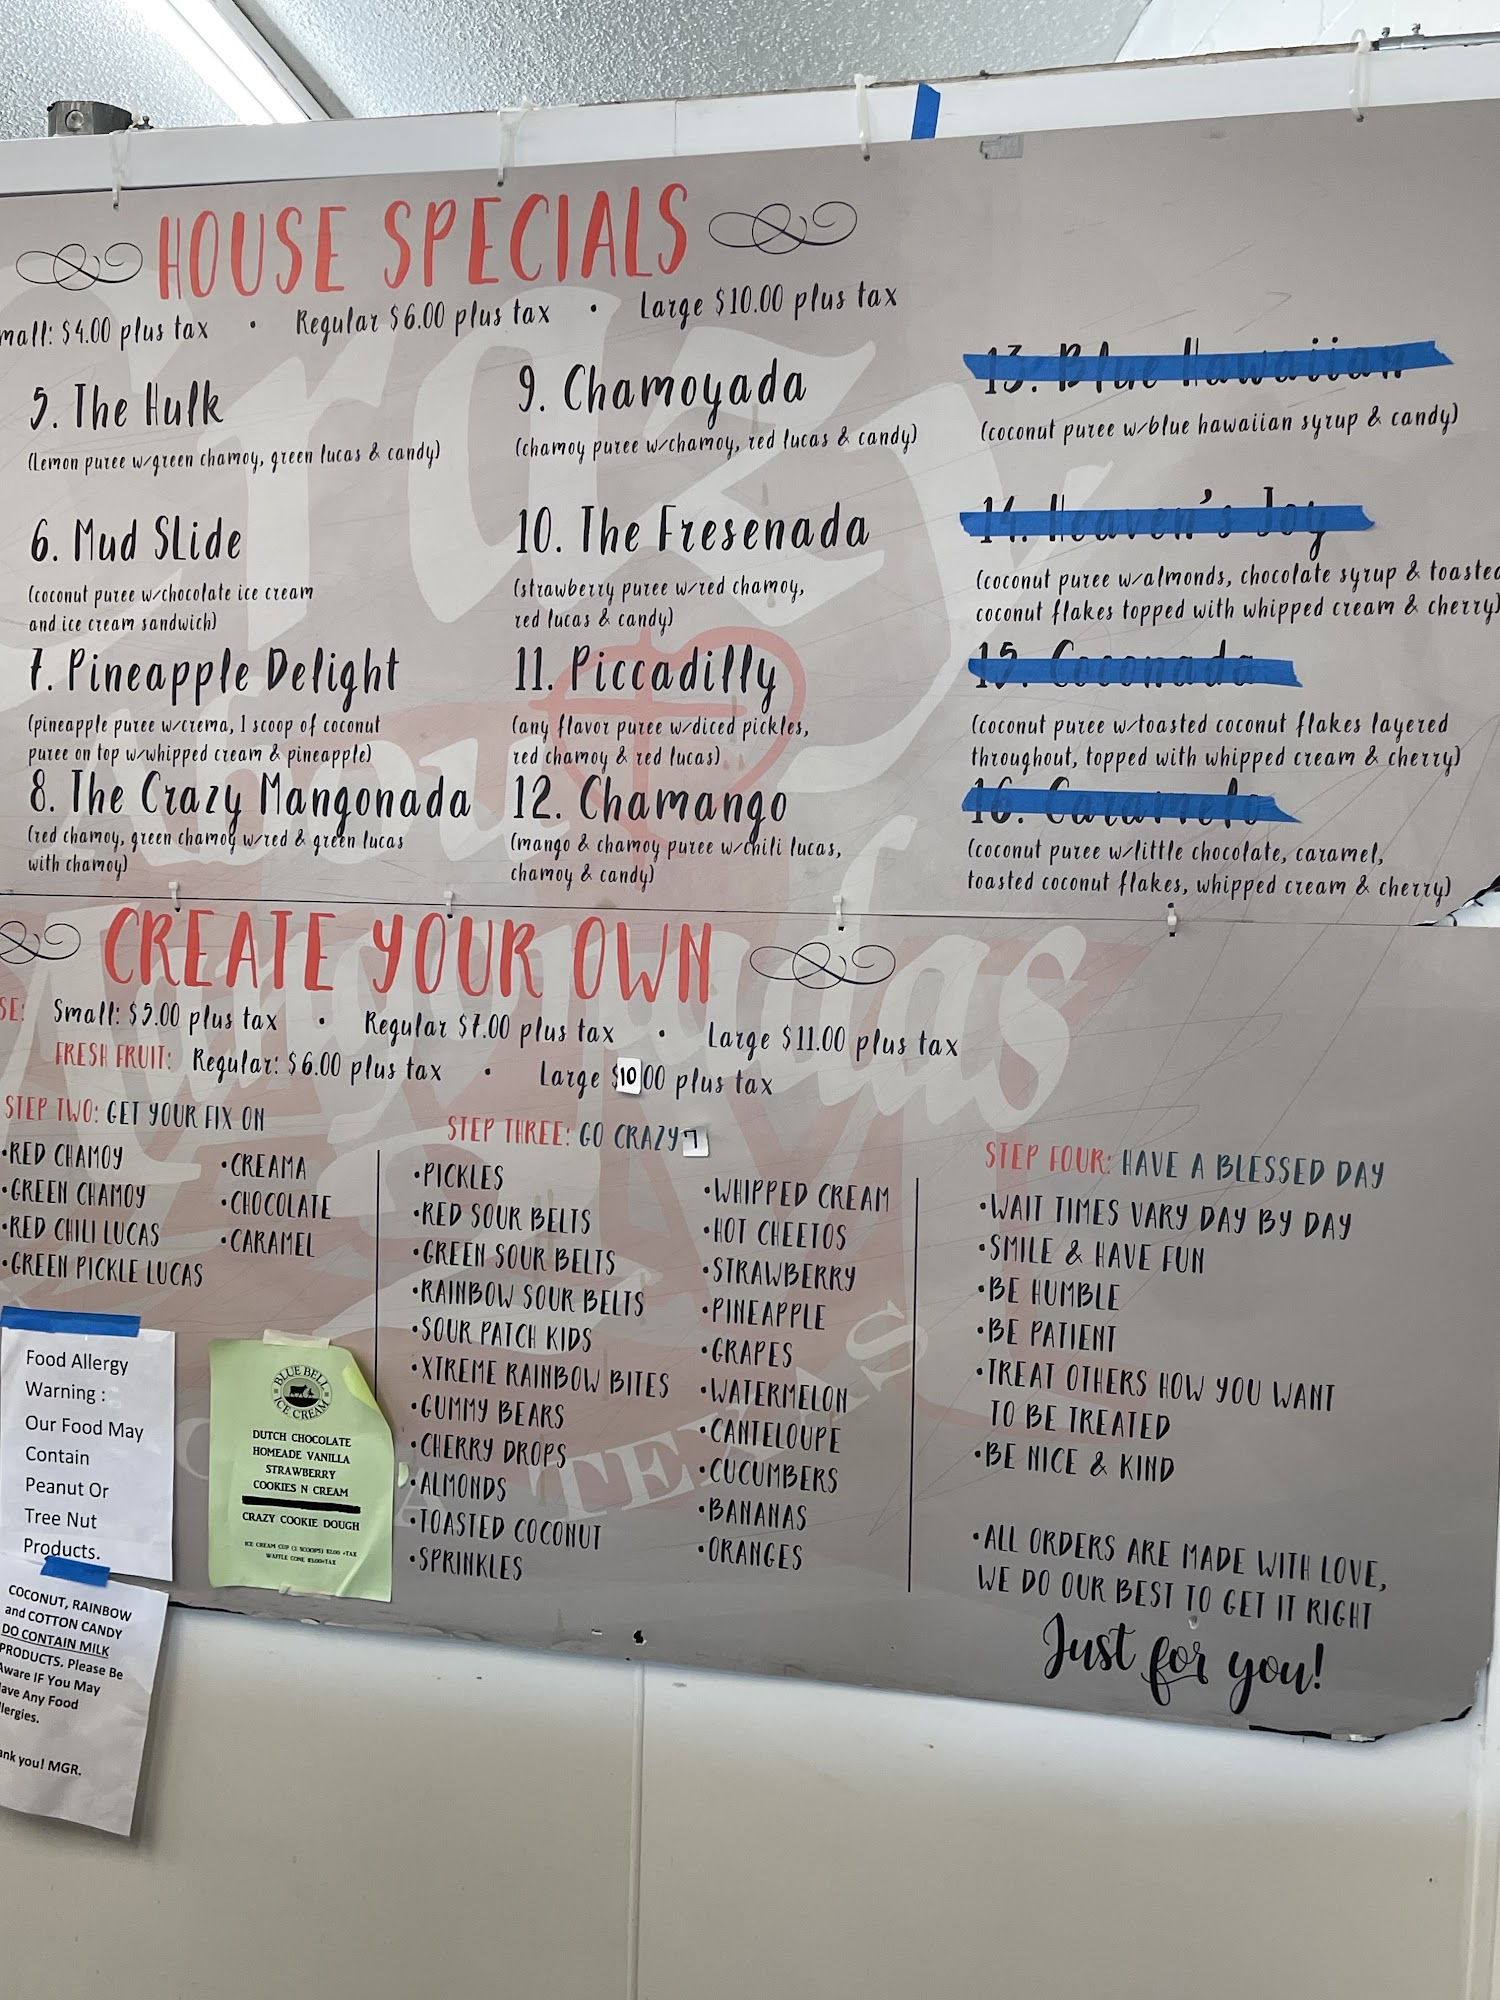 HOUSE SPECIALS
mall: $4.00 plus tax • Regular $6.00 plus tax • Large $10.00 plus tax
5. The Hulk
(Lemon puree w/green chamoy, green lucas & candy)
6. Mud SLide
(coconut puree w/chocolate ice cream
and ice cream sandwich)
7. Pineapple Delight
(pineapple puree w/crema, 1 scoop of coconut
puree on top w/whipped cream & pineapple)
8. The Crazy Mangonada
(red chamoy, green chamoy w/red & green lucas
with chamoy)
9. Chamoyada
(chamoy puree w/chamoy, red lucas & candy)
10. The Fresenada
(strawberry puree w/red chamoy,
red lucas & candy)
11. Piccadilly
(any flavor puree w/diced pickles,
red chamoy & red lucas)
12. Chamango
(mango & chamoy puree w/chili lucas,
chamoy & candy)
13. Blue Hawaiian
(coconut puree w/blue hawaiian syrup & candy)
14. Heaven's Joy
(coconut puree w/almonds, chocolate syrup & toasted
coconut flakes topped with whipped cream & cherry)
15. Coconada
(coconut puree w/toasted coconut flakes layered
throughout, topped with whipped cream & cherry)
16. Caramelo
(coconut puree w/little chocolate, caramel,
toasted coconut flakes, whipped cream & cherry)
CREATE YOUR OWN
SE: Small: $5.00 plus tax • Regular $7.00 plus tax • Large $11.00 plus tax
FRESH FRUIT: Regular: $6.00 plus tax • Large $10.00 plus tax
STEP TWO: GET YOUR FIX ON
•RED CHAMOY
•GREEN CHAMOY
•RED CHILI LUCAS
•GREEN PICKLE LUCAS
•CREAMA
•CHOCOLATE
•CARAMEL
STEP THREE: GO CRAZY 7
•PICKLES
•RED SOUR BELTS
•GREEN SOUR BELTS
•RAINBOW SOUR BELTS
•SOUR PATCH KIDS
•XTREME RAINBOW BITES
•GUMMY BEARS
•CHERRY DROPS
•ALMONDS
•TOASTED COCONUT
•SPRINKLES
•WHIPPED CREAM
•HOT CHEETOS
•STRAWBERRY
•PINEAPPLE
•GRAPES
•WATERMELON
•CANTELOUPE
•CUCUMBERS
•BANANAS
•ORANGES
STEP FOUR: HAVE A BLESSED DAY
•WAIT TIMES VARY DAY BY DAY
•SMILE & HAVE FUN
•BE HUMBLE
•BE PATIENT
•TREAT OTHERS HOW YOU WANT
TO BE TREATED
•BE NICE & KIND
•ALL ORDERS ARE MADE WITH LOVE,
WE DO OUR BEST TO GET IT RIGHT
Just for you!
Food Allergy
Warning :
Our Food May
Contain
Peanut Or
Tree Nut
Products.
COCONUT, RAINBOW
and COTTON CANDY
DO CONTAIN MILK
PRODUCTS. Please Be
Aware IF You May
ave Any Food
llergies.
ank you! MGR.
BLUE BELL
ICE CREAM
DUTCH CHOCOLATE
HOMEADE VANILLA
STRAWBERRY
COOKIES N CREAM
CRAZY COOKIE DOUGH
ICE CREAM CUP (2 SCOOPS) $2.00 +TAX
WAFFLE CONE $3.00+TAX